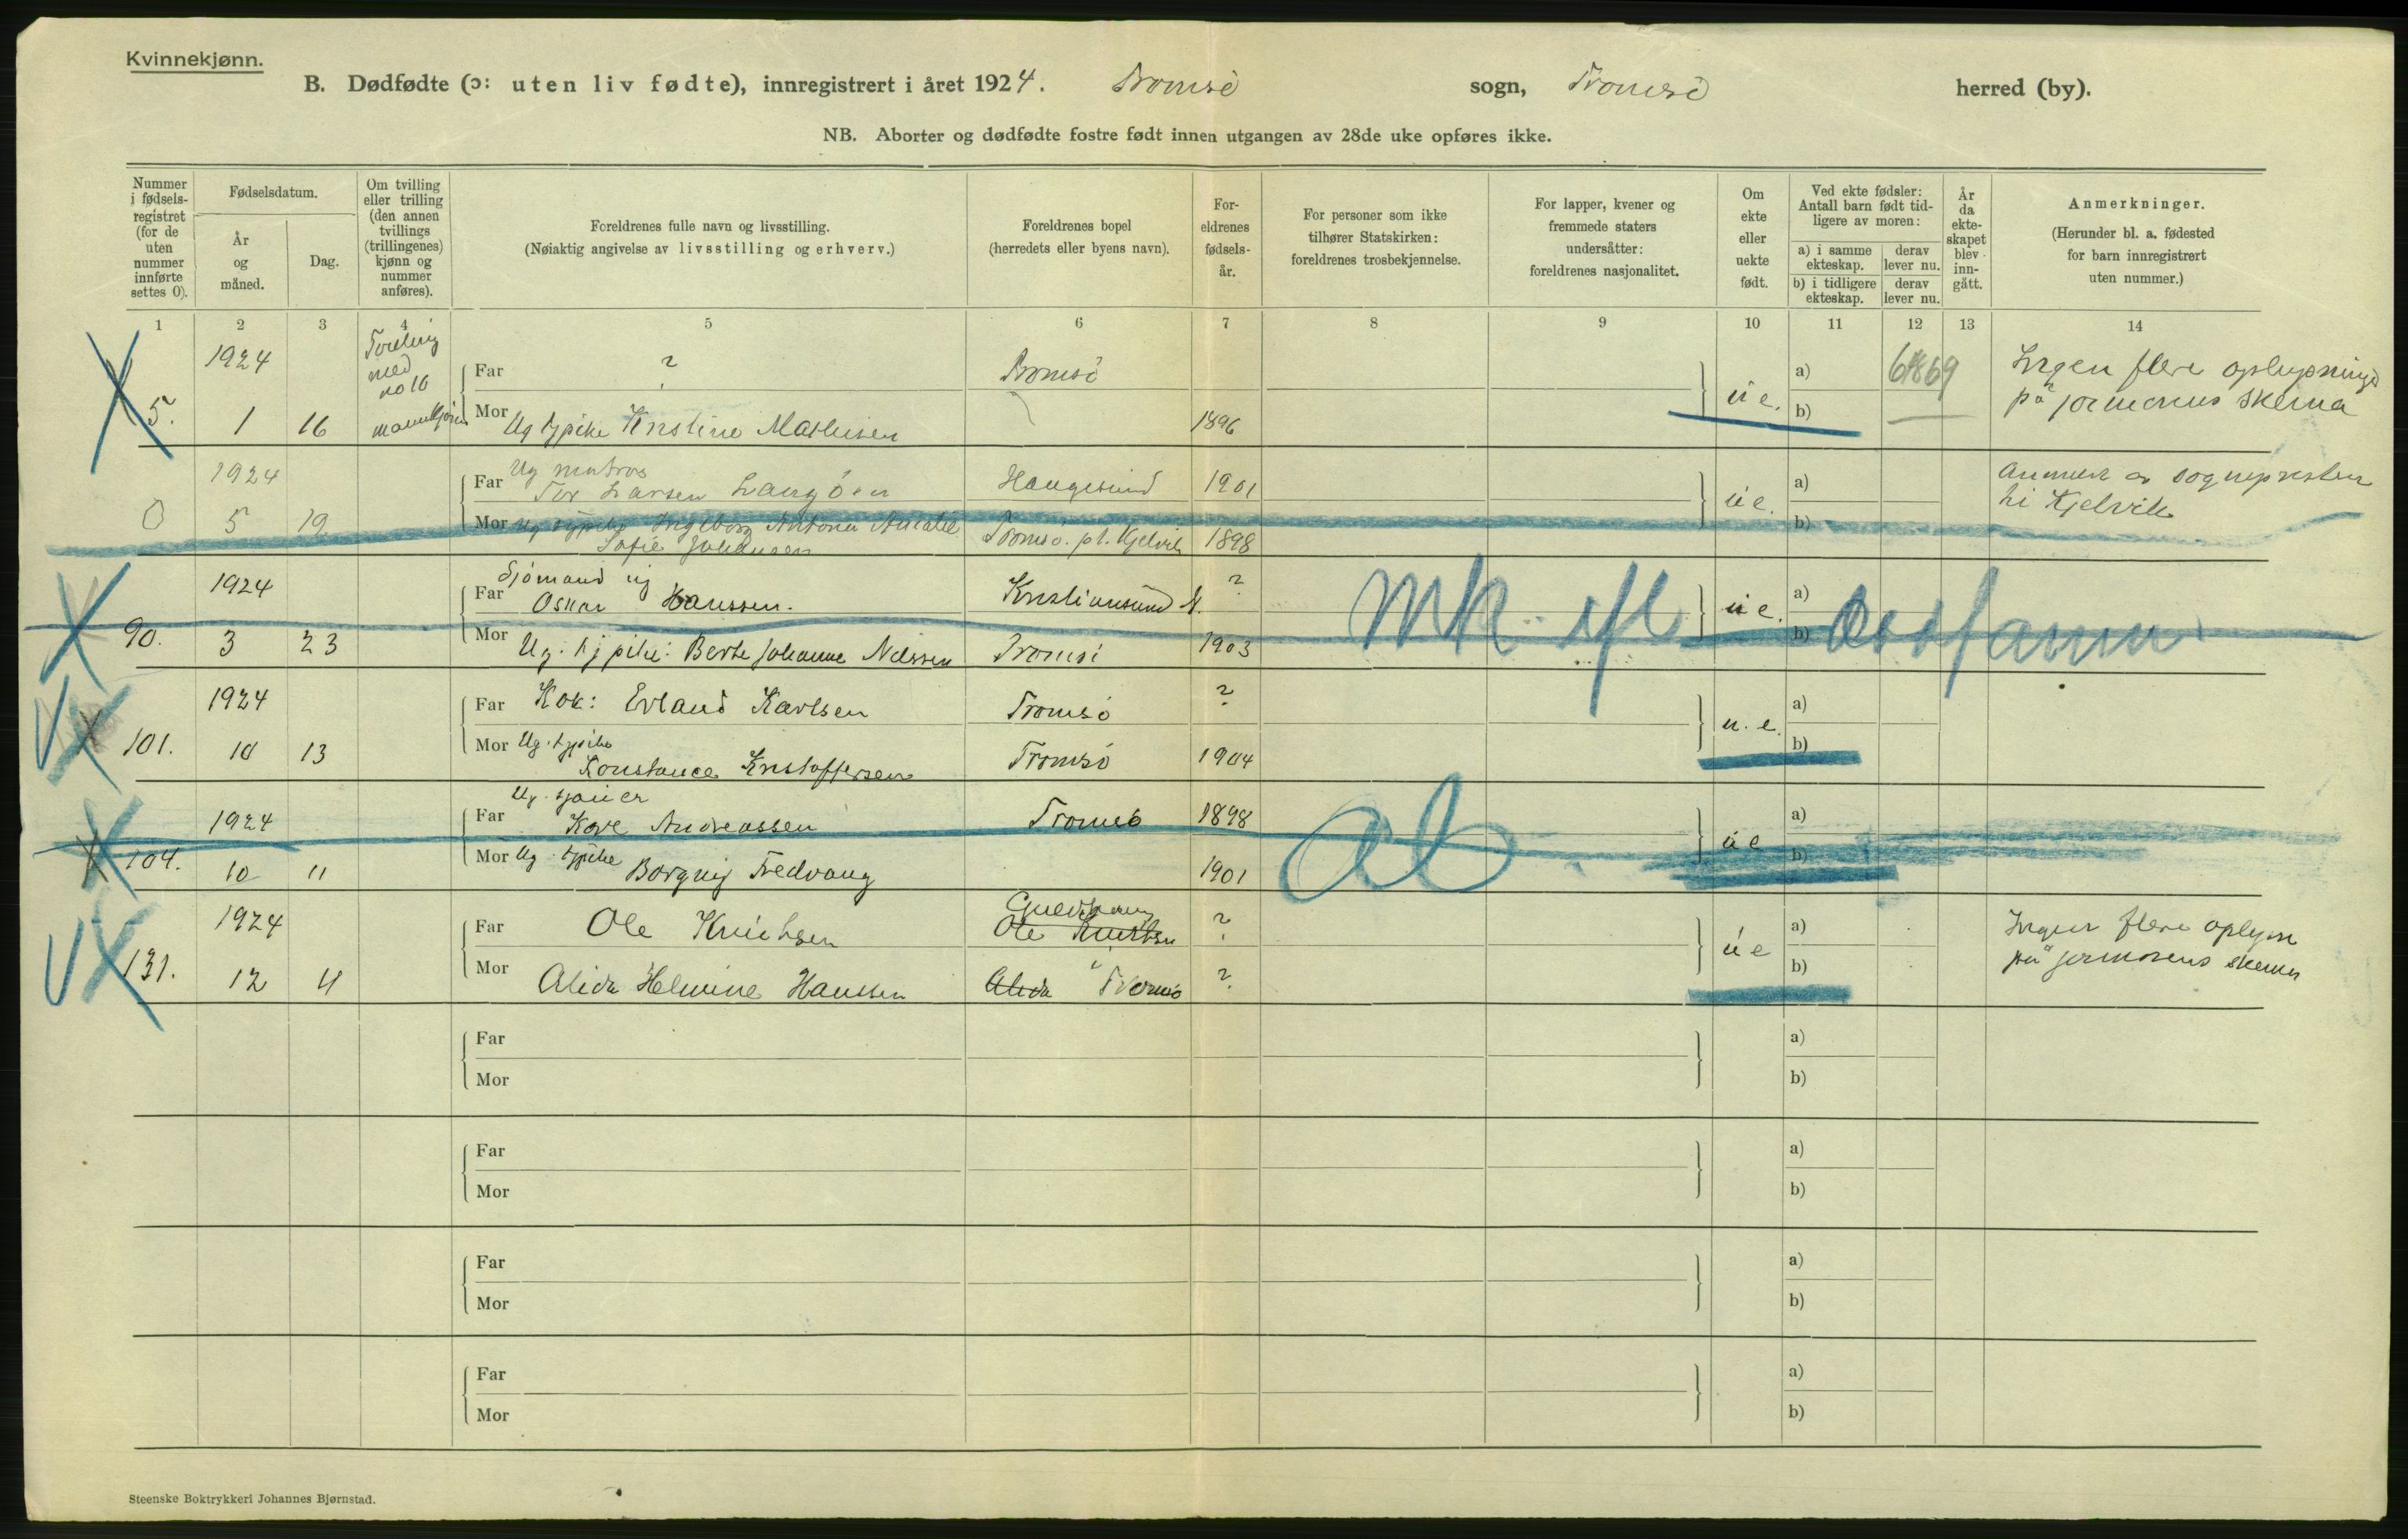 Kvinnekjønn.
B. Dødfødte (ɔ: uten liv fødte), innregistrert i året 1924. Tromsö sogn, Tromsö herred (by).
NB. Aborter og dødfødte fostre født innen utgangen av 28de uke opføres ikke.
Nummer i fødsels-registret (for de uten nummer innførte settes 0).
Fødselsdatum.
År og måned.
Dag.
Om tvilling eller trilling (den annen tvillings (trillingenes) kjønn og nummer anføres).
Foreldrenes fulle navn og livsstilling.
(Nøiaktig angivelse av livsstilling og erhverv.)
Foreldrenes bopel
(herredets eller byens navn).
For-eldrenes fødsels-år.
For personer som ikke tilhører Statskirken: foreldrenes trosbekjennelse.
For lapper, kvener og fremmede staters undersåtter: foreldrenes nasjonalitet.
Om ekte eller uekte født.
Ved ekte fødsler: Antall barn født tid-ligere av moren:
a) i samme ekteskap.
derav lever nu.
b) i tidligere ekteskap.
derav lever nu.
År da ekte-skapet blev inn-gått.
Anmerkninger.
(Herunder bl. a. fødested for barn innregistrert uten nummer.)
1 2 3 4 5 6 7 8 9 10 11 12 13 14
1924 med no 16 Far ? Tromsö a) Ingen flere
5. 1 16 Mor Ug tjpike Kristine Mathisen 1896 u e. b) på skema
1924 Far Ug matros
Tor Larsen Haugesund 1901 a) sognepresten
0 5 19 Mor Ug tjpike Ingeborg Antonie Amalie u e. b) til Kjelvik
Sofie Johansen Tromsö. pt. Kjelvik 1898
1924 Far Sjömand ug
Oskar Hanssen. Kristiansund N. ? a)
90. 3 23 Mor Ug. tj pike: Berte Johanne Nilssen Tromsö 1903 u e. b)
1924 Far Kok: Erland Karlsen Tromsö ? a)
101. 10 13 Mor Ug. tjpike u. e. b)
Konstance Kristoffersen Tromsö 1904
Ug.
1924 Far Kåre Andreassen Tromsö 1898 a)
104. 10 11 Mor Ug. tjpike Borgny Fredvang 1901 u e b)
1924 Far Ole Knutsen Ole Knutsen ? a) Ingen flere
131. 12 4 Mor Alida Helmine Hanssen Alida Tromsö ? u e b) på jormorens skema
Far a)
Mor b)
Far a)
Mor b)
Far a)
Mor b)
Far a)
Mor b)
Steenske Boktrykkeri Johannes Bjørnstad.